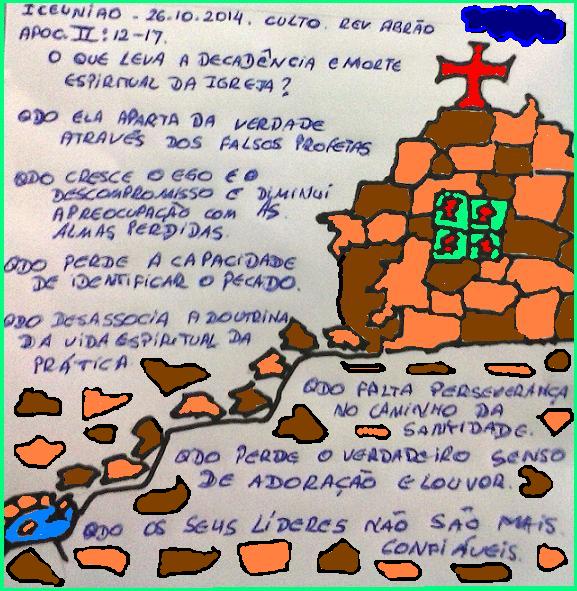 ICEUNIÃO - 26.10.2014. CULTO. REV ABRÃO
APOC. II: 12-17.
O QUE LEVA A DECADÊNCIA E MORTE
ESPIRITUAL DA IGREJA?
QDO ELA APARTA DA VERDADE
ATRAVÉS DOS FALSOS PROFETAS
QDO CRESCE O EGO E O
DESCOMPROMISSO E DIMINUI
APREOCUPAÇÃO COM AS
ALMAS PERDIDAS.
QDO PERDE A CAPACIDADE
DE IDENTIFICAR O PECADO.
QDO DESASSOCIA A DOUTRINA
DA VIDA ESPIRITUAL DA
PRÁTICA
QDO FALTA PERSEVERANÇA
NO CAMINHO DA
SANTIDADE.
QDO PERDE O VERDADEIRO SENSO
DE ADORAÇÃO E LOUVOR.
QDO OS SEUS LÍDERES NÃO SÃO MAIS
CONFIÁVEIS.